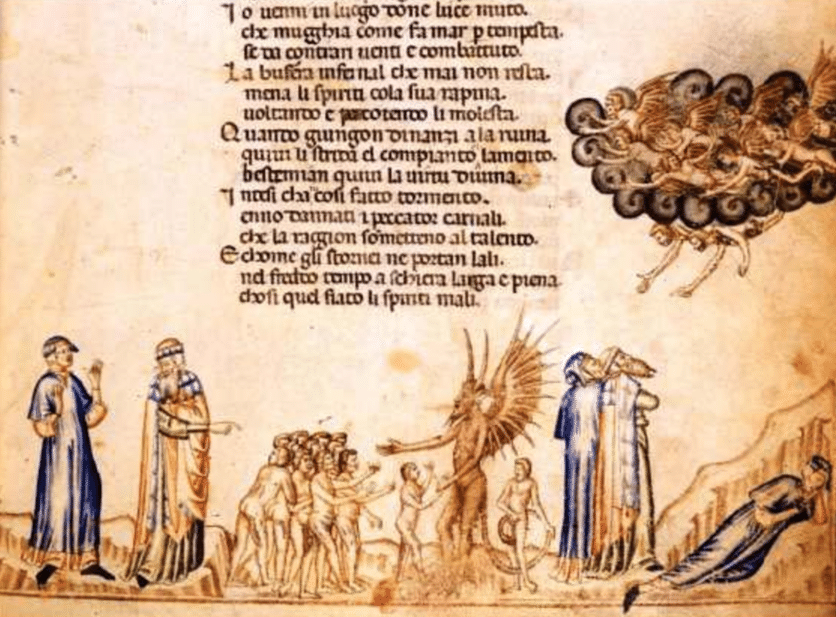 Io uenni in luogo done luce muto.
che mugghia come fa mar p tempesta.
se da contrari uenti e combattuto.
La bufera infernal che mai non resta.
mena li spiriti cola sua rapina.
uoltando e percotendo li molesta.
Quando giungon dinanzi a la ruina
quiui li strida el compianto lamento.
bestemian quiui la uirtu diuina.
Intesi cha cosi fatto tormento.
enno dannati i peccator carnali.
che la raggion someteno al talento.
Echome gli stornei ne portan lali.
nel freddo tempo a schiera larga e piena
chosi quel fiato li spiriti mali.